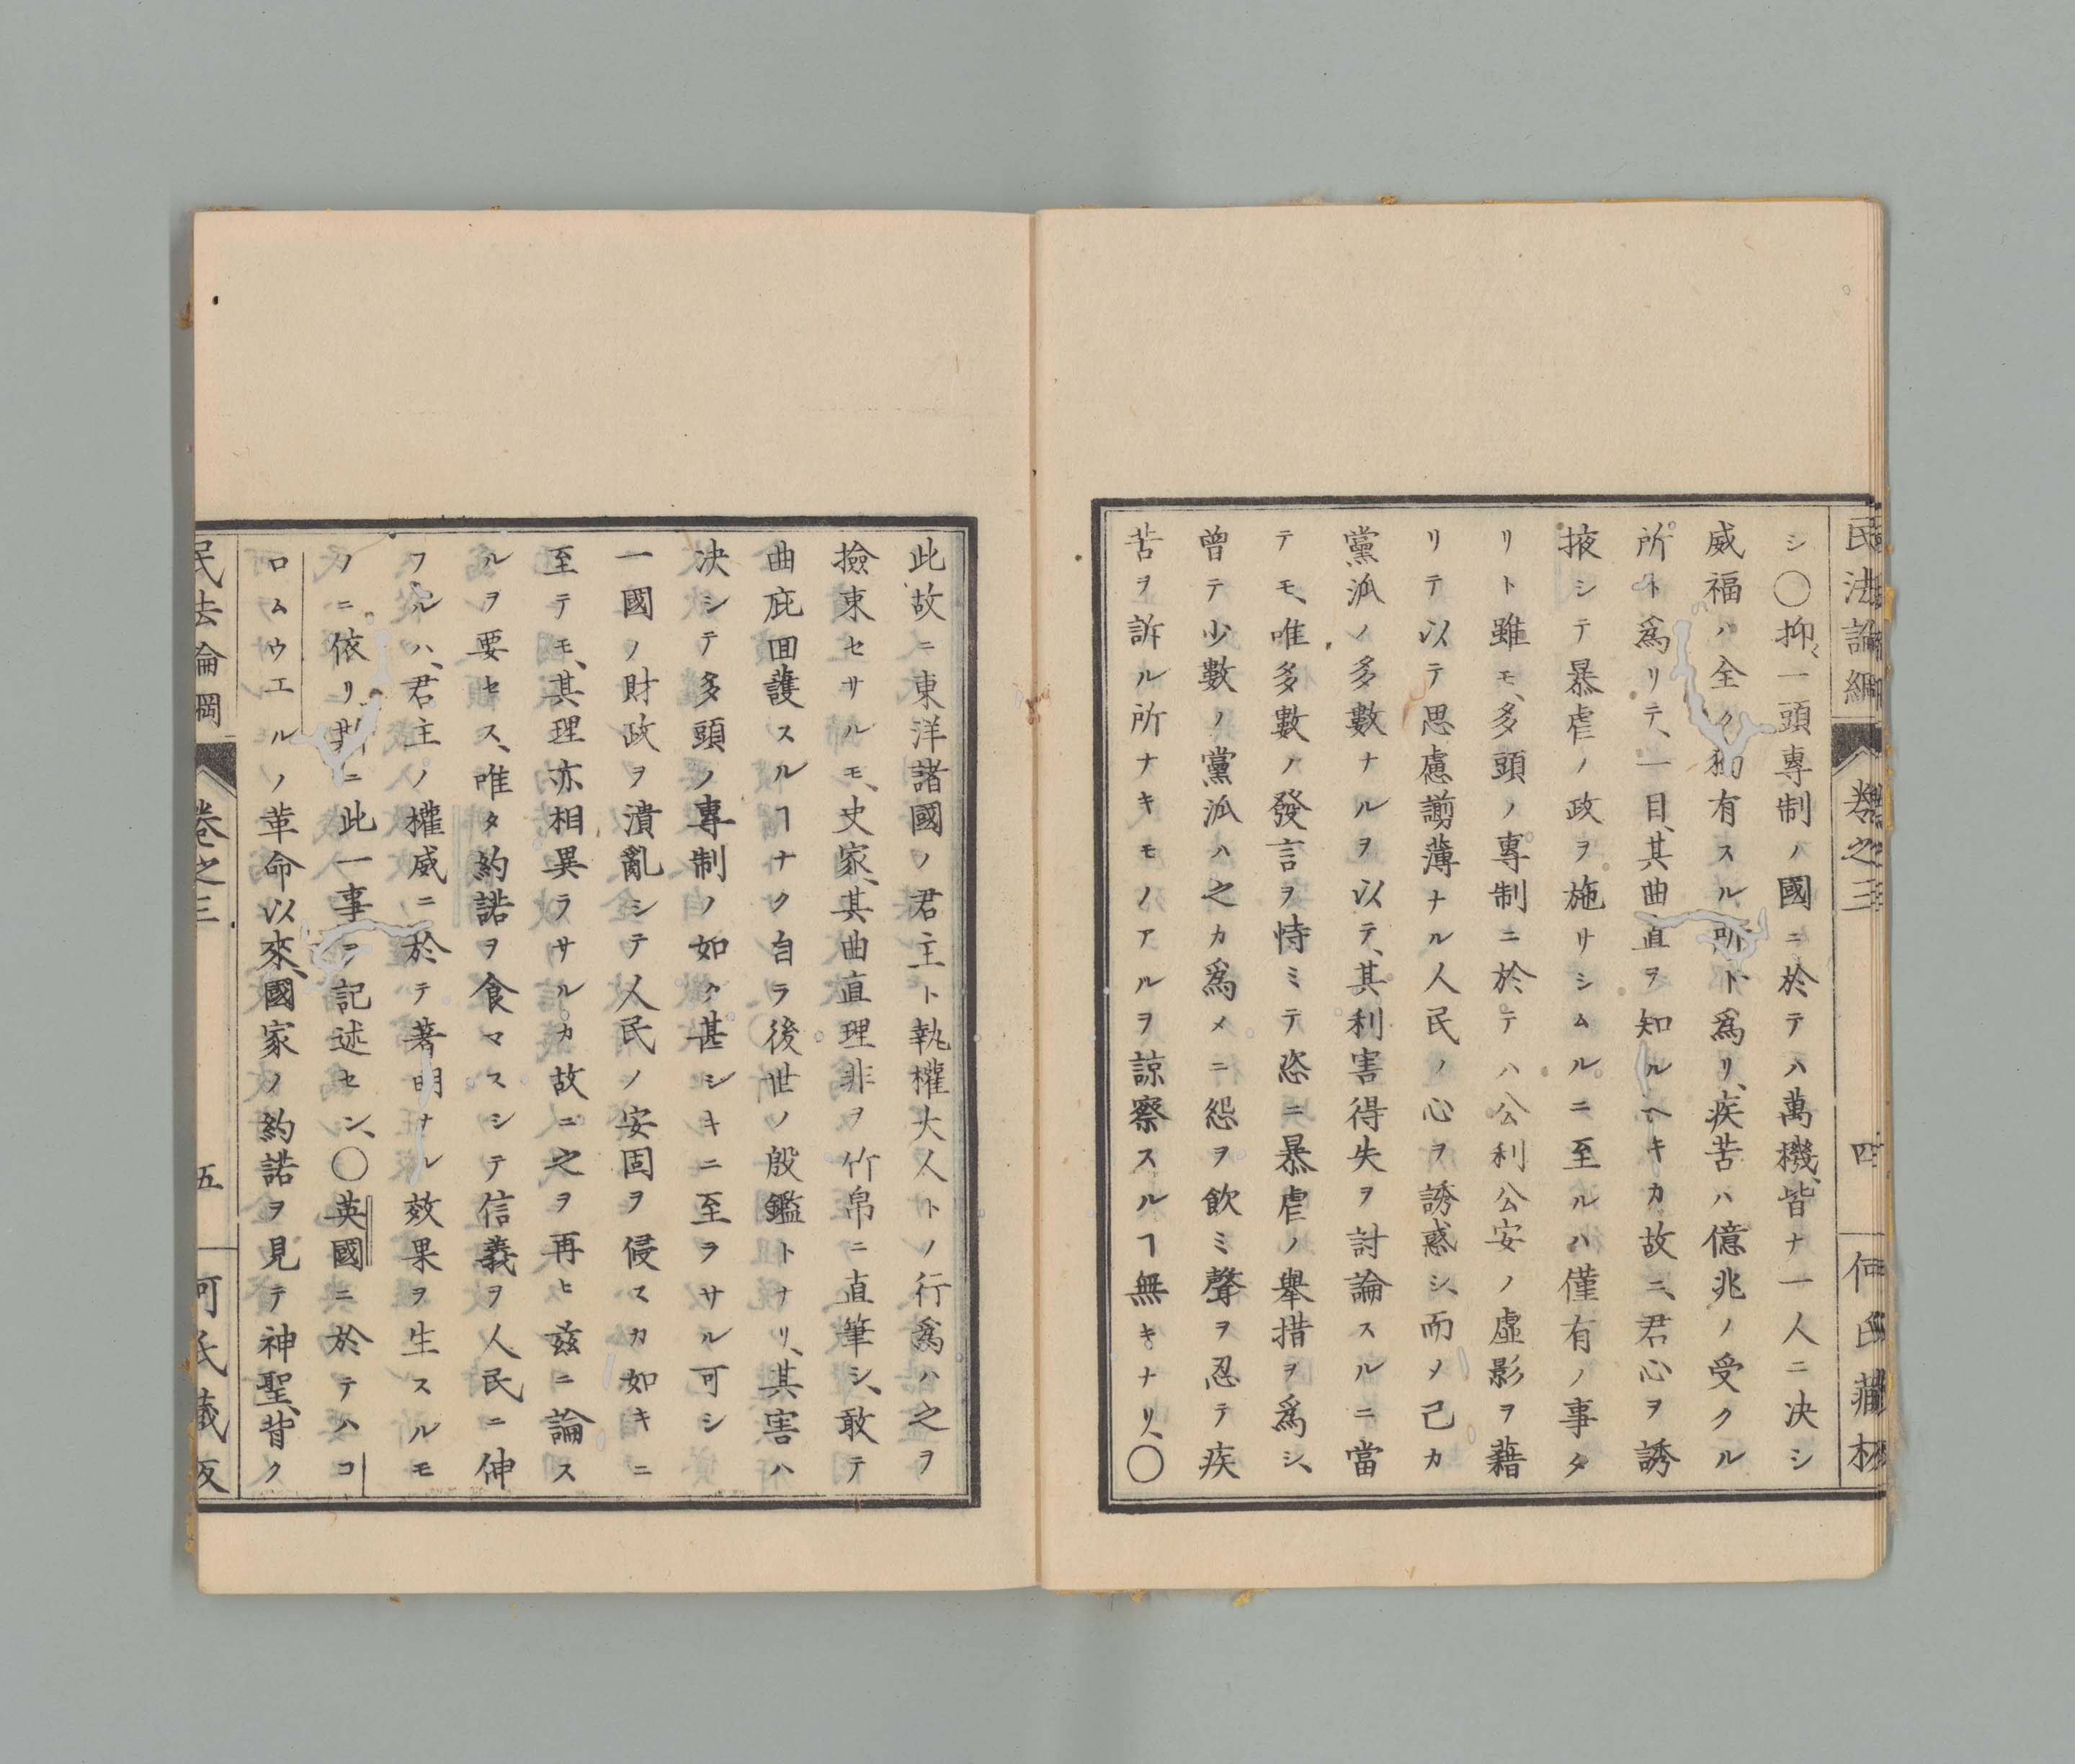 民法論綱 卷之三 四 何氏藏板
シ〇抑〻一頭專制ノ國ニ於テハ萬機、皆ナ一人ニ决シ
威福ハ全ク獨有スル所ト爲リ、疾苦ハ億兆ノ受クル
所ト爲リテ、一目、其曲直ヲ知ルヘキカ故ニ、君心ヲ誘
掖シテ暴虐ノ政ヲ施サシムルニ至ルハ僅有ノ事タ
リト雖モ、多頭ノ專制ニ於テハ公利公安ノ虛影ヲ藉
リテ以テ思慮謭薄ナル人民ノ心ヲ誘惑シ、而メ己カ
黨派ノ多數ナルヲ以テ、其利害得失ヲ討論スルニ當
テモ、唯多數ノ發言ヲ恃ミテ恣ニ暴虐ノ擧措ヲ爲シ、
曾テ少數ノ黨派ハ之カ爲メニ怨ヲ飮ミ聲ヲ忍テ疾
苦ヲ訴ル所ナキモノアルヲ諒察スルヿ無キナリ、〇
此故ニ東洋諸國ノ君主ト執權大人トノ行爲ハ之ヲ
撿束セサルモ、史家、其曲直理非ヲ竹帛ニ直筆シ、敢テ
曲庇回護スルヿナク自ラ後世ノ殷鑑トナリ、其害ハ
决シテ多頭ノ專制ノ如ク甚シキニ至ラサル可シ
一國ノ財政ヲ潰亂シテ人民ノ安固ヲ侵スカ如キニ
至テモ、其理亦相異ラサルカ故ニ之ヲ再ヒ茲ニ論ス
ルヲ要セス、唯タ約諾ヲ食マスシテ信義ヲ人民ニ伸
フルハ、君主ノ權威ニ於テ著明ナル效果ヲ生スルモ
ノニ依リ斯ニ此一事ヲ記述セン、〇英國ニ於テハコ
ロムウエルノ革命以來、國家ノ約諾ヲ見テ神聖、背ク
民法論綱 卷之三 五 何氏藏板